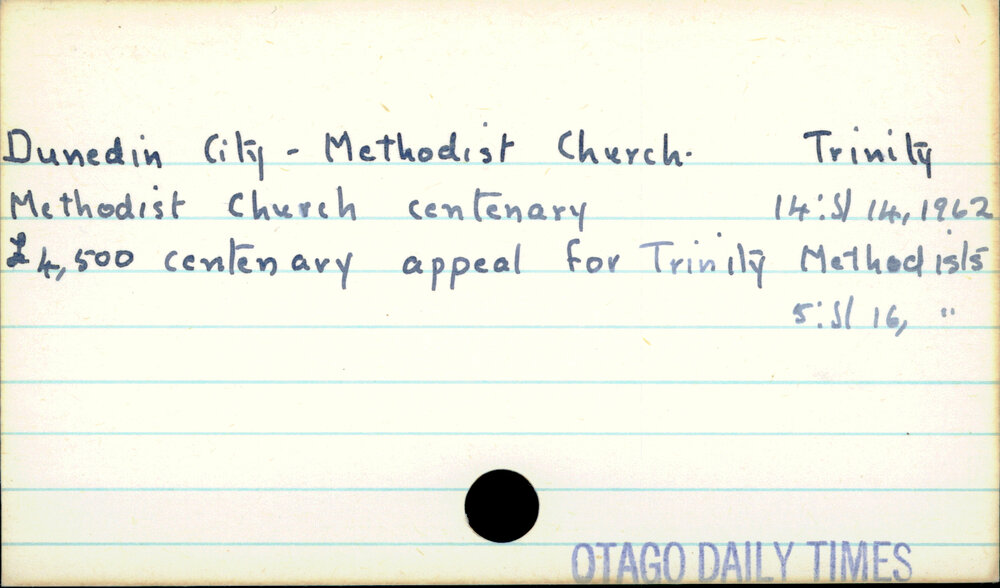 Dunedin City - Methodist Church. Trinity
Methodist Church centenary 14:Jl 14, 1962
£4,500 centenary appeal for Trinity Methodists
5:Jl 16, "
OTAGO DAILY TIMES